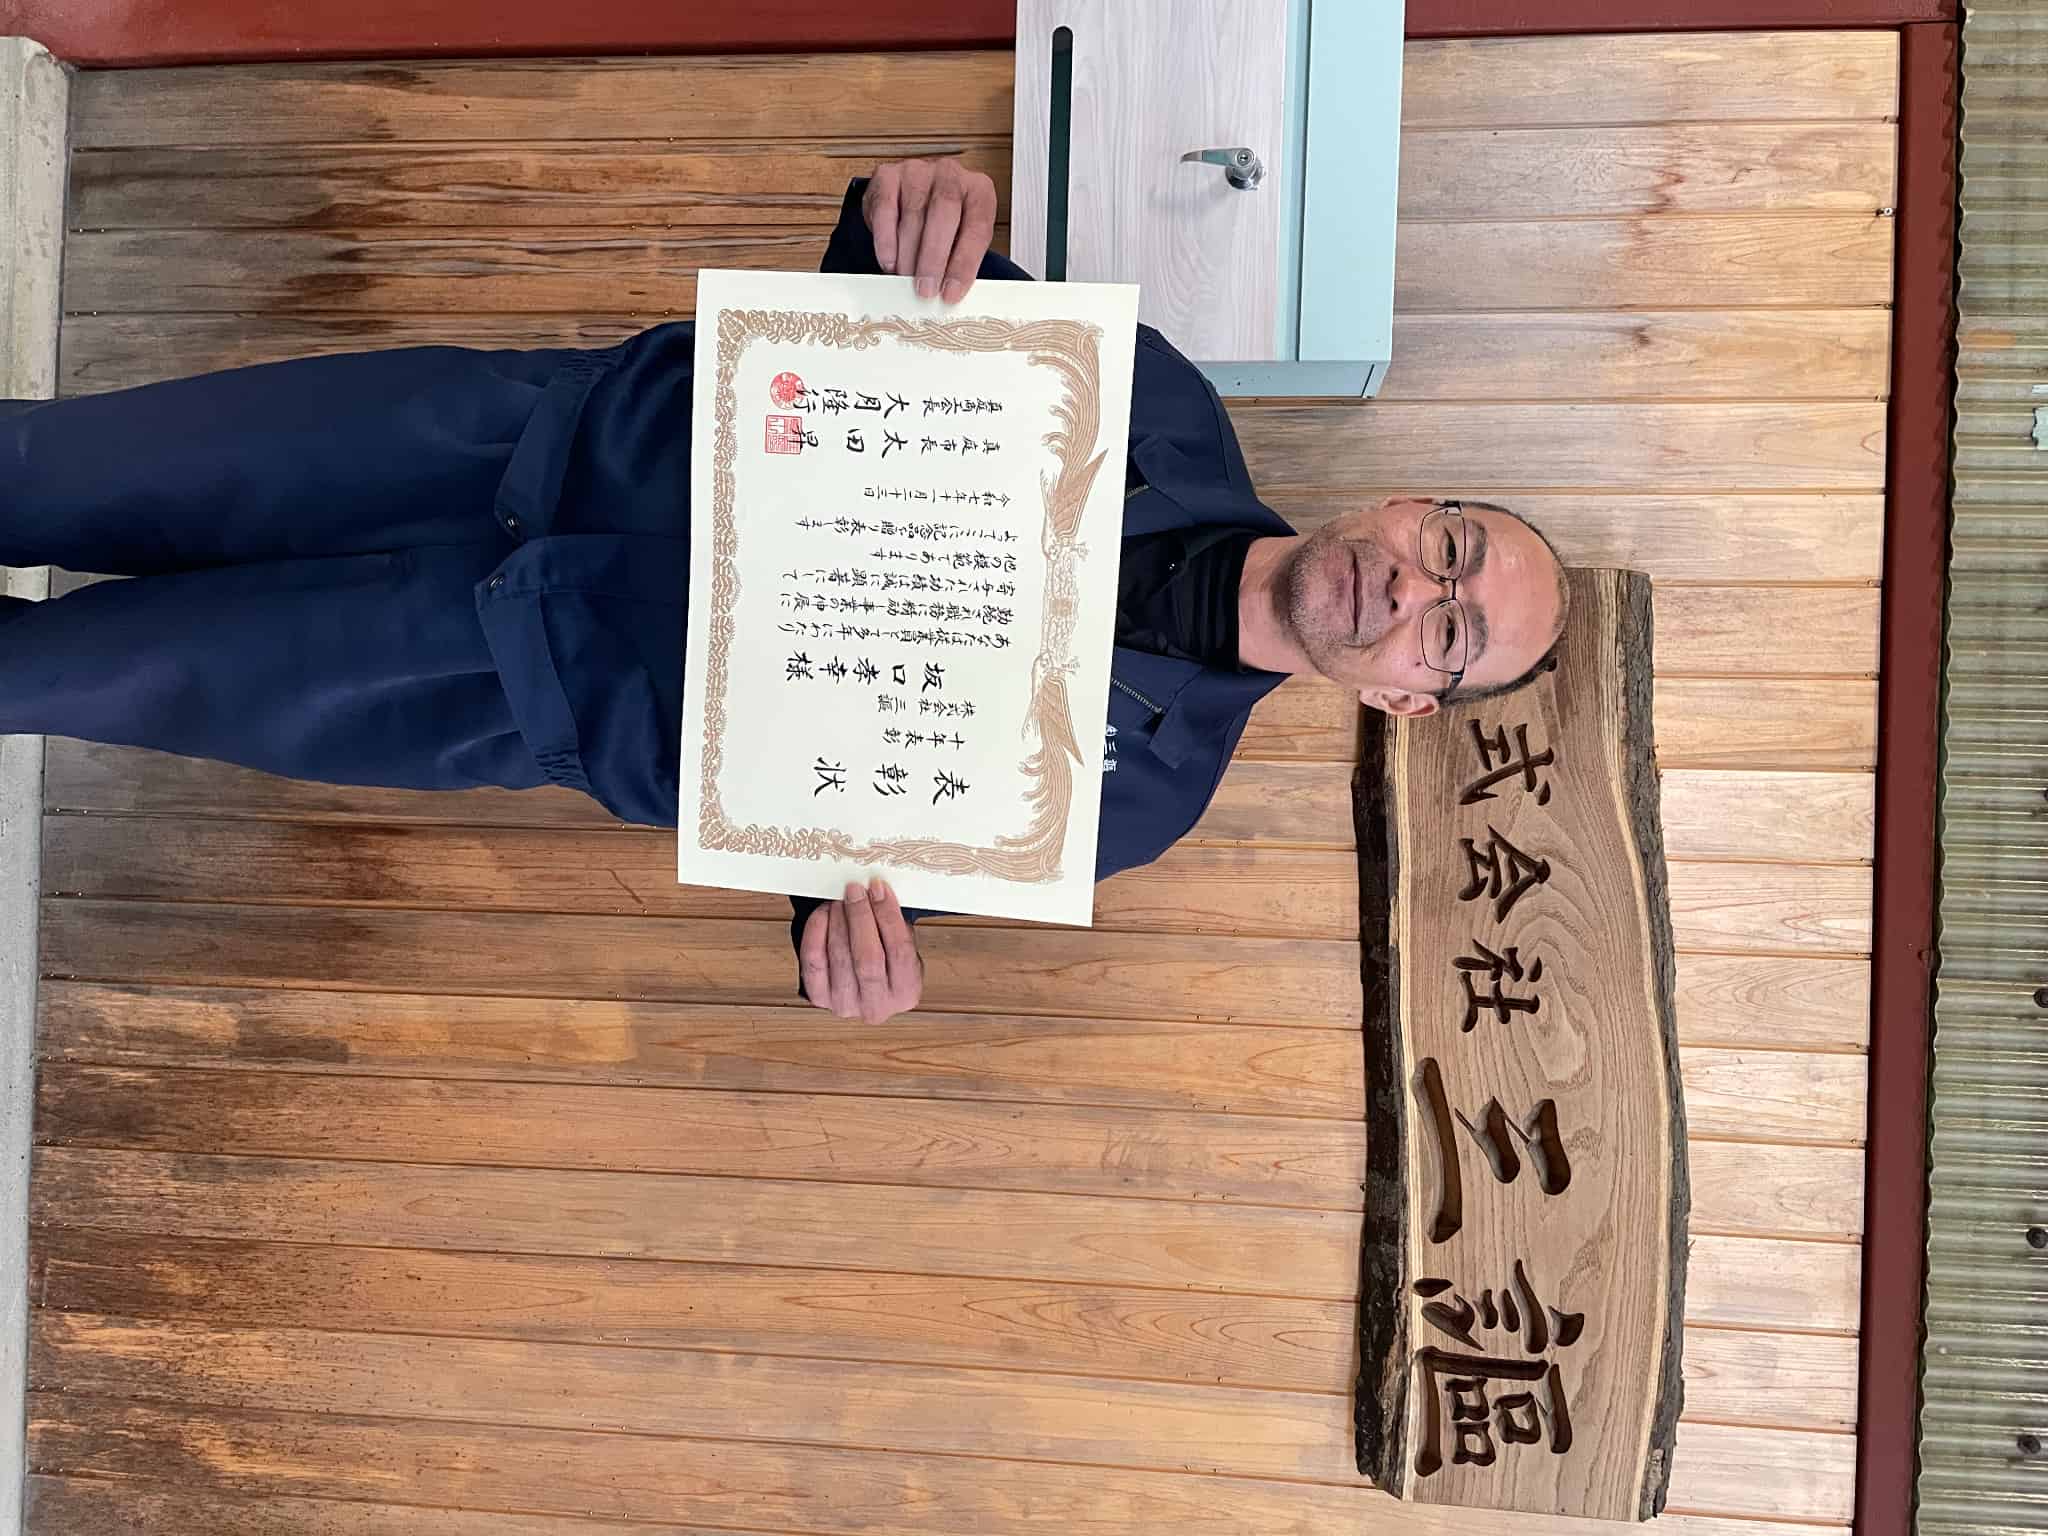 式会社三謳
表彰状
十年表彰
株式会社三謳
坂口孝幸様
あなたは従業員として多年にわたり
勤続され職務に精励し事業の伸展に
寄与された功績は誠に顕著にして
他の模範であります
よってここに記念品を贈り表彰します
令和七年十一月二十三日
真庭市長 太田昇
真庭商工会長 大月隆行
㈱三謳